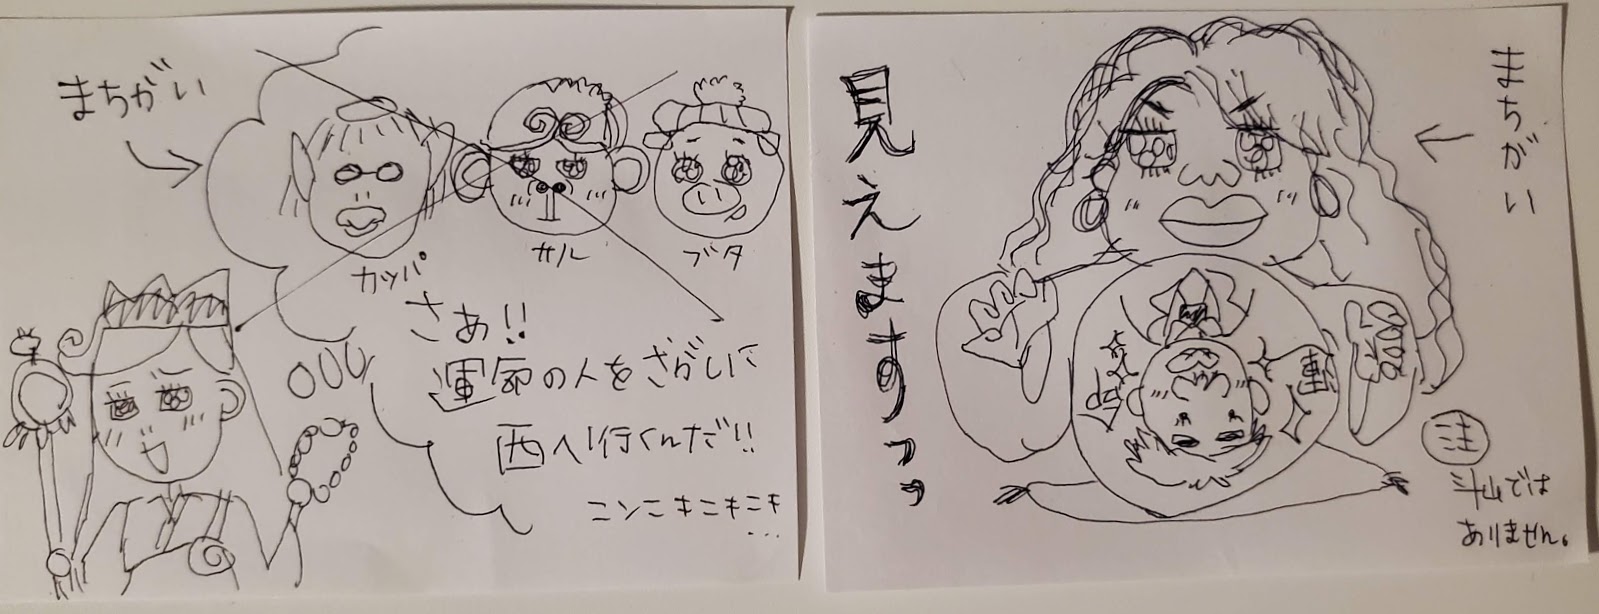 まちがい
カッパ
サル
ブタ
さあ!!
運命の人をさがしに
西へ行くんだ!!
ニンニキニキニキ
...
見えますっっ
まちがい
運
命
注
斗山では
ありません。